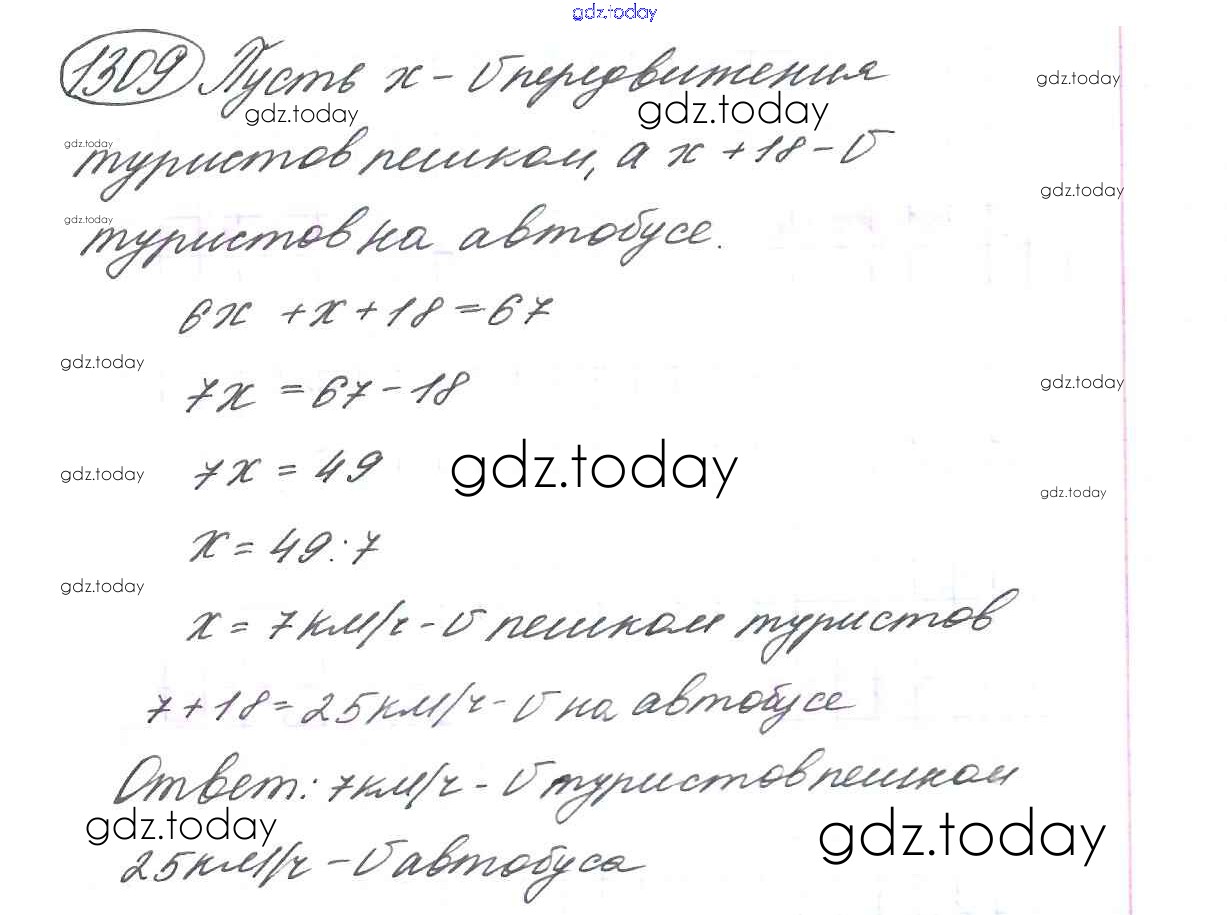 gdz.today
1309 Пусть x - υ передвижения
gdz.today
gdz.today
gdz.today
gdz.today
туристов пешком, а x + 18 - υ
gdz.today
gdz.today
туристов на автобусе.
6x + x + 18 = 67
gdz.today
7x = 67 - 18
gdz.today
gdz.today
7x = 49
gdz.today
gdz.today
x = 49 : 7
gdz.today
x = 7 км/ч - υ пешком туристов
7 + 18 = 25 км/ч - υ на автобусе
Ответ: 7 км/ч - υ туристов пешком
gdz.today
gdz.today
25 км/ч - υ автобуса